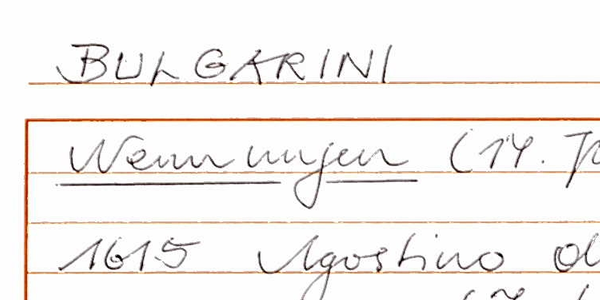 BULGARINI
Nennungen (14.
1615 Agostino